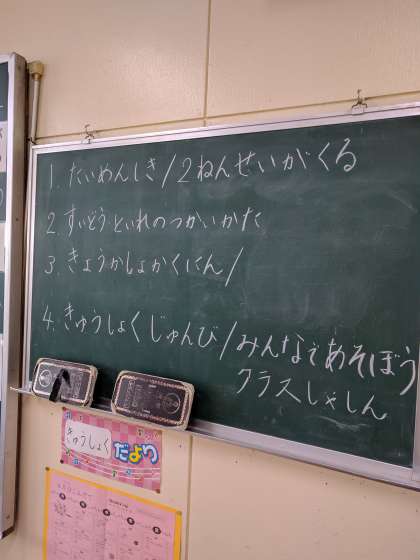 1. たいめんしき/2ねんせいがくる
2. すいどうといれのつかいかた
3. きょうかしょかくにん/
4. きゅうしょくじゅんび/みんなであそぼう
クラスしゃしん
きゅうしょく
だより